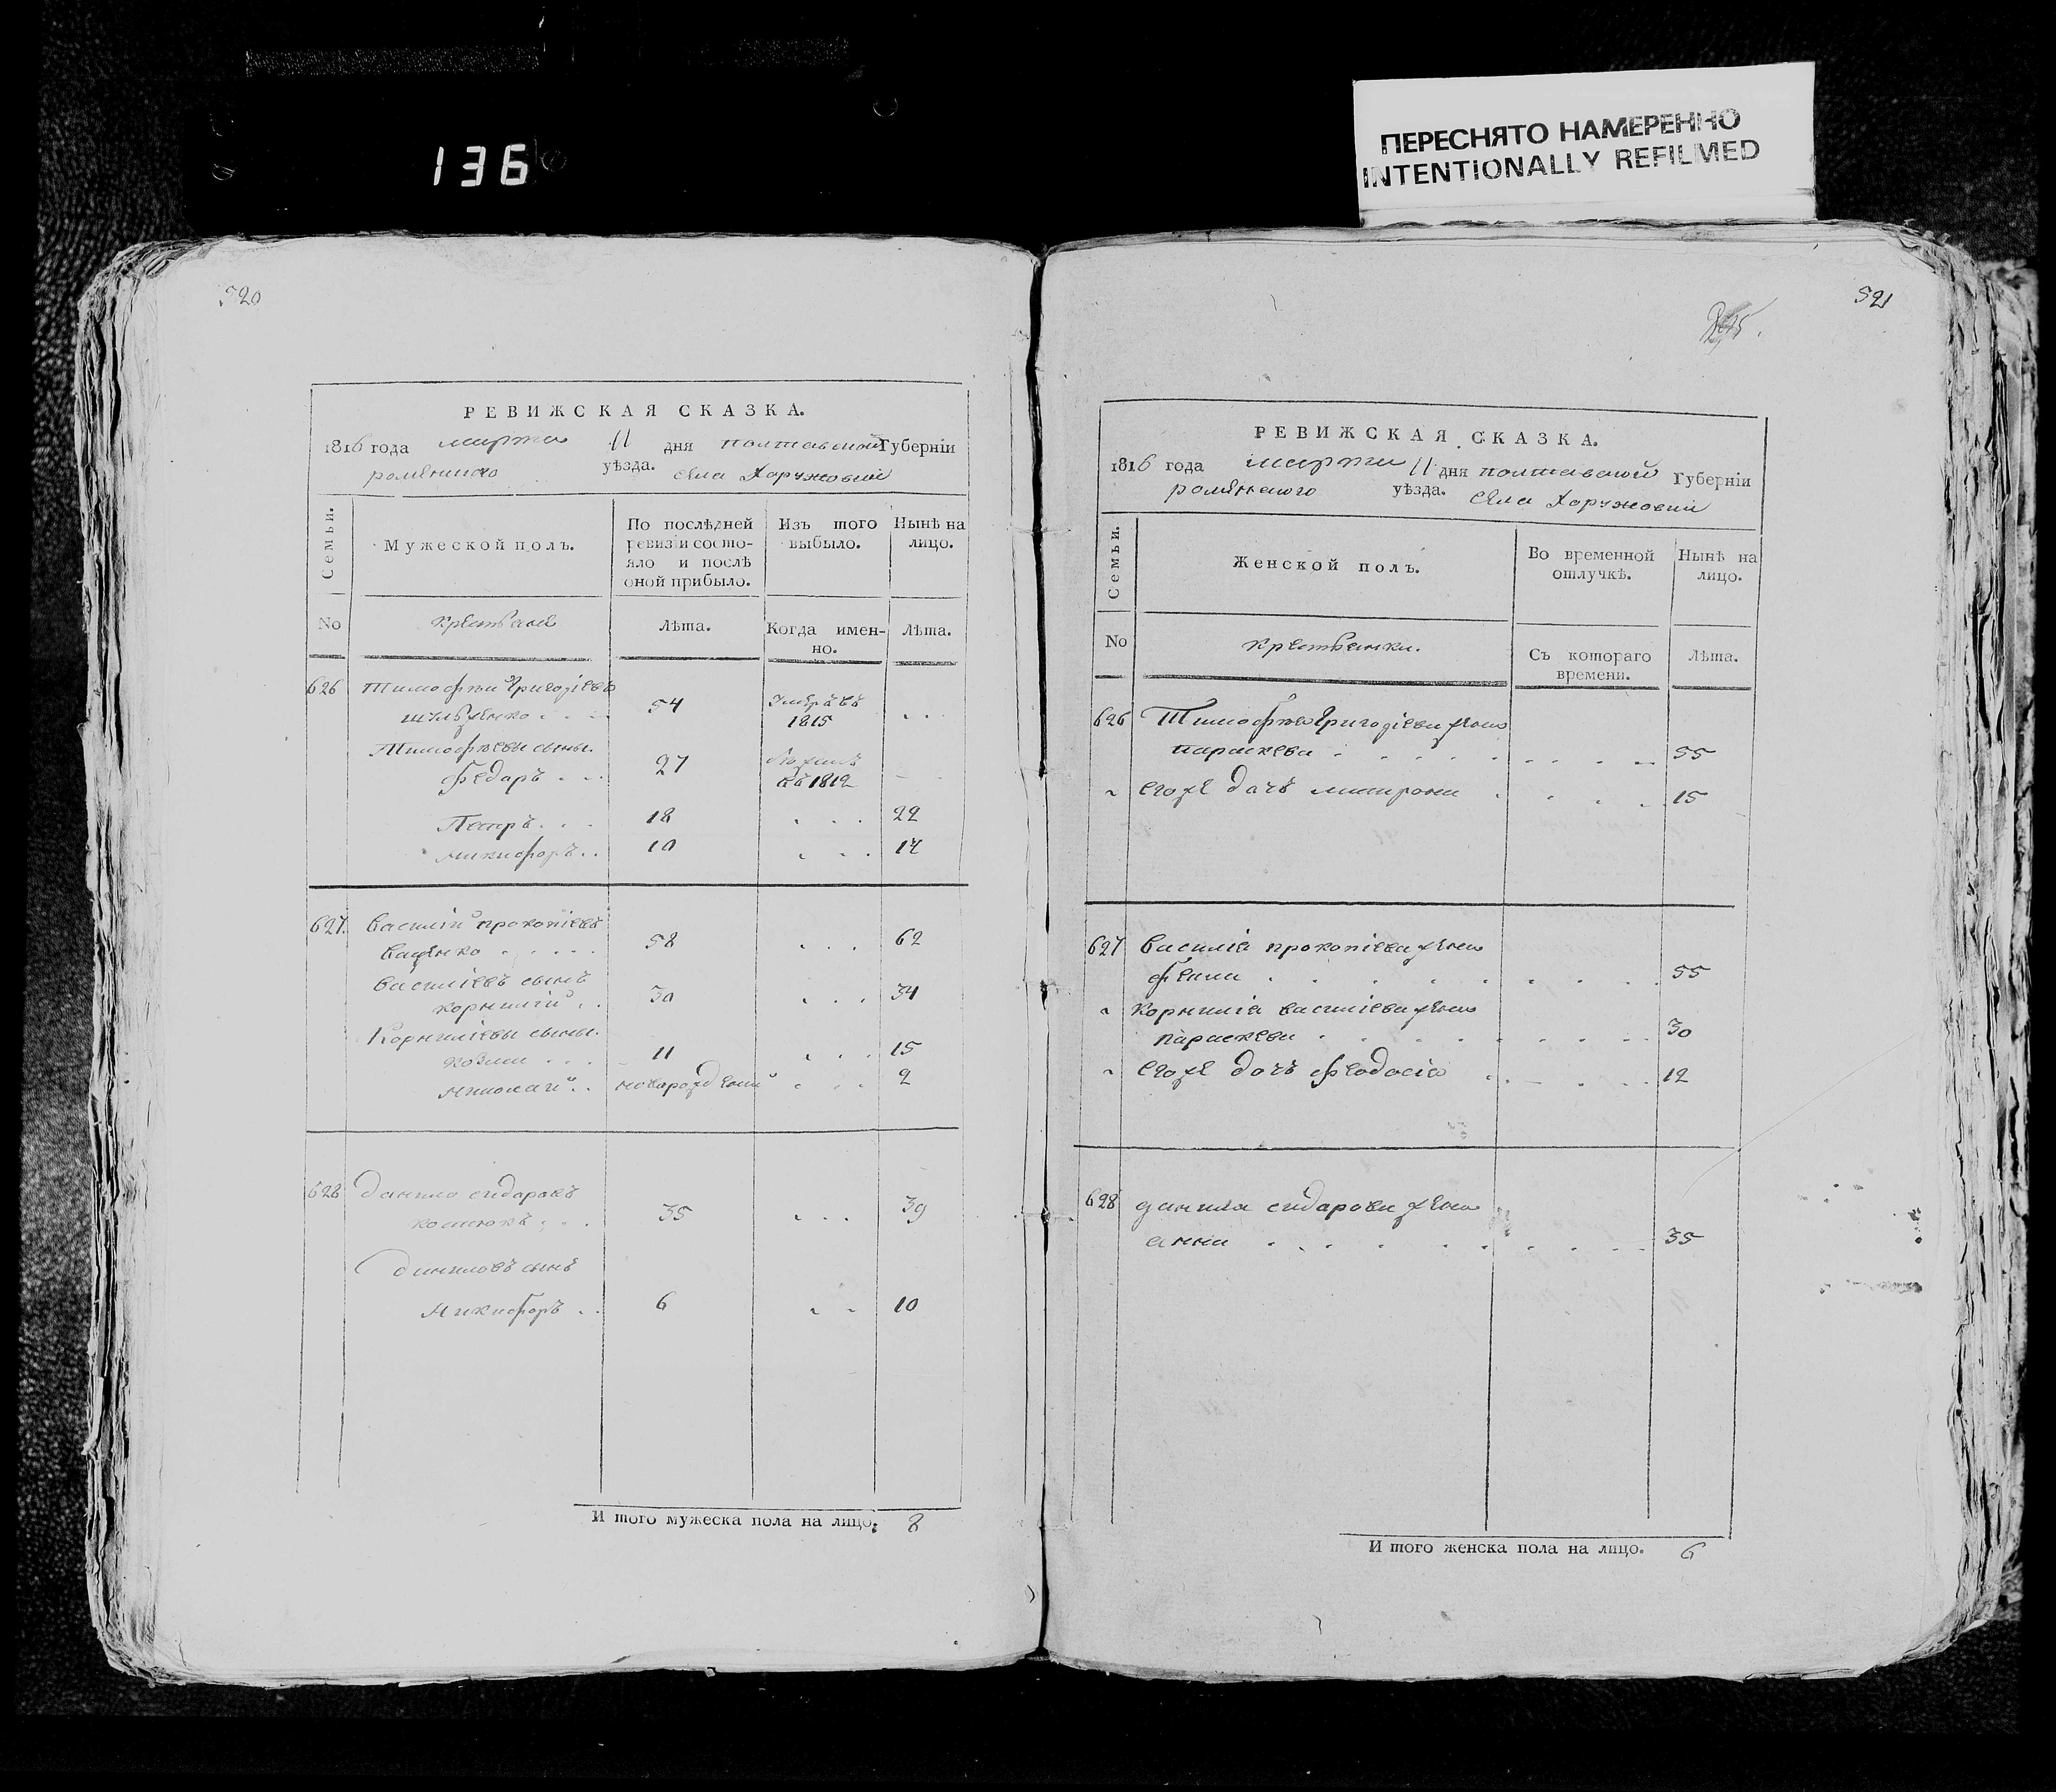 136
ПЕРЕСНЯТО НАМЕРЕННО
INTENTIONALLY REFILMED
520
РЕВИЖСКАЯ СКАЗКА.
1816 года марта 11 дня полтавской Губерніи
роменского уѣзда. села Хоружовки
Семьи.
Мужеской полъ.
По послѣдней ревизіи состояло и послѣ оной прибыло.
Изъ того выбыло.
Нынѣ на лицо.
No
крестьяне
Лѣта.
Когда именно.
Лѣта.
626 Тимофѣй Григоріевъ
54 Умеръ въ 1815 . . .
Тимофѣевы сыны.
Федаръ . . . 27 въ 1812
Петръ . . . 18 . . . 22
Микифоръ . . 10 . . . 14
627 Василій прокопіевъ
ваценко . . . . . 58 . . . 62
Василіевъ сынъ
корнилій . . 30 . . . 34
Корниліевы сыны.
козма . . . 11 . . . 15
Николай . . новорожденый . . . 2
628 Данило сидаровъ
костюкъ . . . 35 . . . 39
Даниловъ сынъ
Микифоръ . . 6 . . 10
И того мужеска пола на лицо: 8
521
РЕВИЖСКАЯ СКАЗКА.
1816 года марта 11 дня полтавской Губерніи
роменского уѣзда. села Хоружовки
Семьи.
Женской полъ.
Во временной отлучкѣ.
Нынѣ на лицо.
No
крестьянки.
Съ котораго времени.
Лѣта.
626 Тимофѣя Григоріева жена
параскева . . . . . . . . . 55
его же дочь митрона . . . . 15
627 Василія прокопіева жена
фенна . . . . . . . . . 55
Корнилія василіева жена
параскева . . . . . . . . . 30
его же дочь феодосія . . . . 12
628 данила сидарова жена
анна . . . . . . . . . 35
И того женска пола на лицо. 6